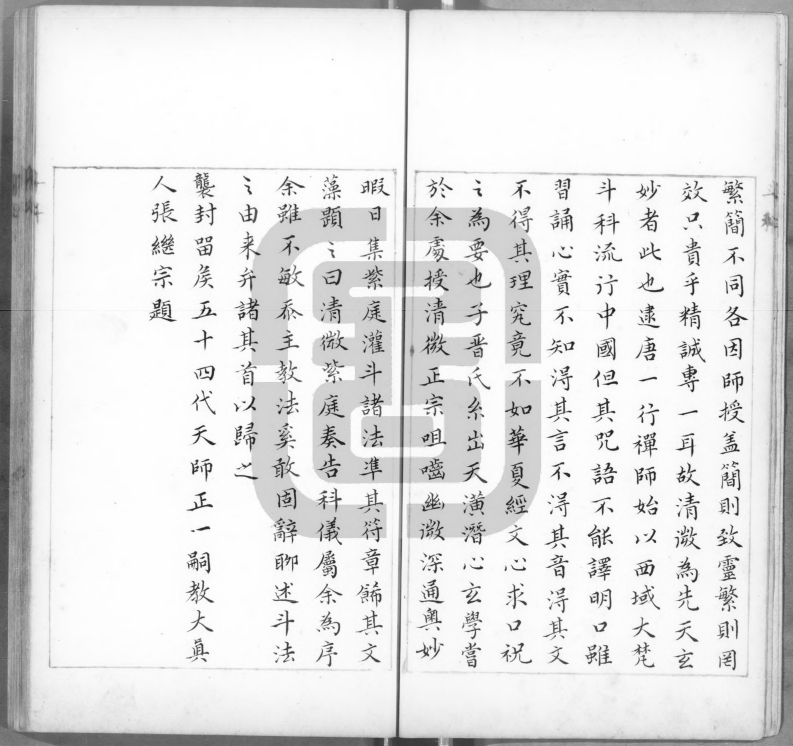 繁簡不同各因師授盖簡則致靈繁則罔
效只貴乎精誠專一耳故清微為先天玄
妙者此也逮唐一行禪師始以西域大梵
斗科流行中國但其咒語不能譯明口雖
習誦心實不知淂其言不淂其音淂其文
不得其理究竟不如華夏經文心求口祝
之為要也子晋氏系出天潢潛心玄學嘗
於余處授清微正宗咀嚙幽微深通奧妙
暇日集紫庭灌斗諸法準其符章餙其文
藻題之曰清微紫庭奏告科儀屬余為序
余雖不敏忝主教法奚敢固辭聊述斗法
之由来弁諸其首以歸之
襲封留侯五十四代天師正一嗣教大真
人張繼宗題